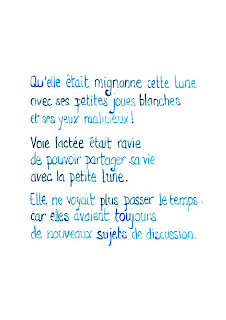 Qu'elle était mignonne cette lune
avec ses petites joues blanches
et ses yeux malicieux !
Voie lactée était ravie
de pouvoir partager sa vie
avec la petite lune.
Elle ne voyait plus passer le temps,
car elles avaient toujours
de nouveaux sujets de discussion.